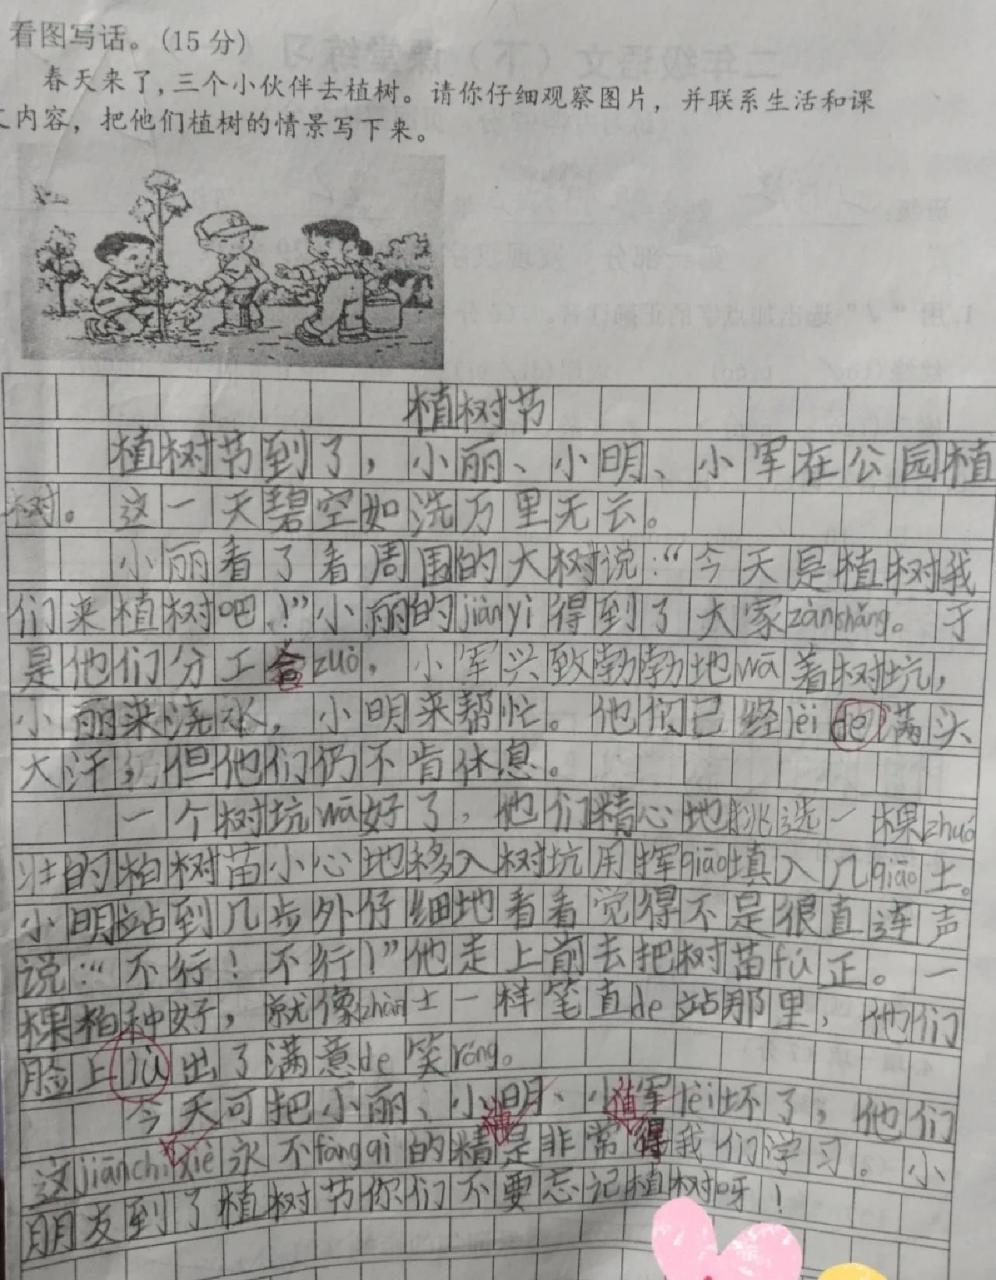 看图写话。(15分)
春天来了,三个小伙伴去植树。请你仔细观察图片，并联系生活和课
内容，把他们植树的情景写下来。
植树节
植树节到了，小丽、小明、小军在公园植
树。这一天碧空如洗万里无云。
小丽看了看周围的大树说：“今天是植树我
们来植树吧！”小丽的jiànyì得到了大家zànshǎng。于
是他们分工合zuò。小军兴致勃勃地wā着树坑，
小丽来浇水，小明来帮忙。他们已经lèi de满头
大汗，但他们仍不肯休息。
一个树坑wā好了，他们精心地挑选一棵zhuó
壮的柏树苗小心地移入树坑用挥qiāo填入几qiāo土。
小明站到几步外仔细地看看觉得不是很直连声
说：“不行！不行！”他走上前去把树苗fú正。一
棵柏种好，就像zhàn士一样笔直de站那里，他们
脸上lù出了满意de笑róng。
今天可把小丽、小明、小军lèi坏了，他们
这jiānchí xiè永不fàngqì的精神是非常值得我们学习。小
朋友到了植树节你们不要忘记植树呀！